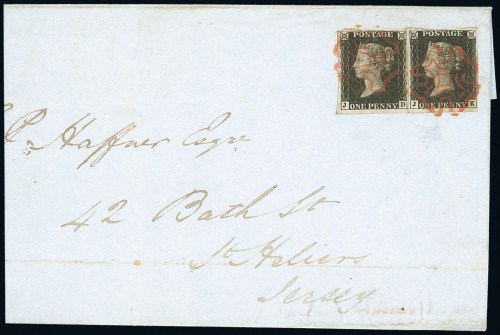 POSTAGE POSTAGE
J ONE PENNY D J ONE PENNY E
P. Haffner Esqre
42 Bath St
St Heliers
Jersey